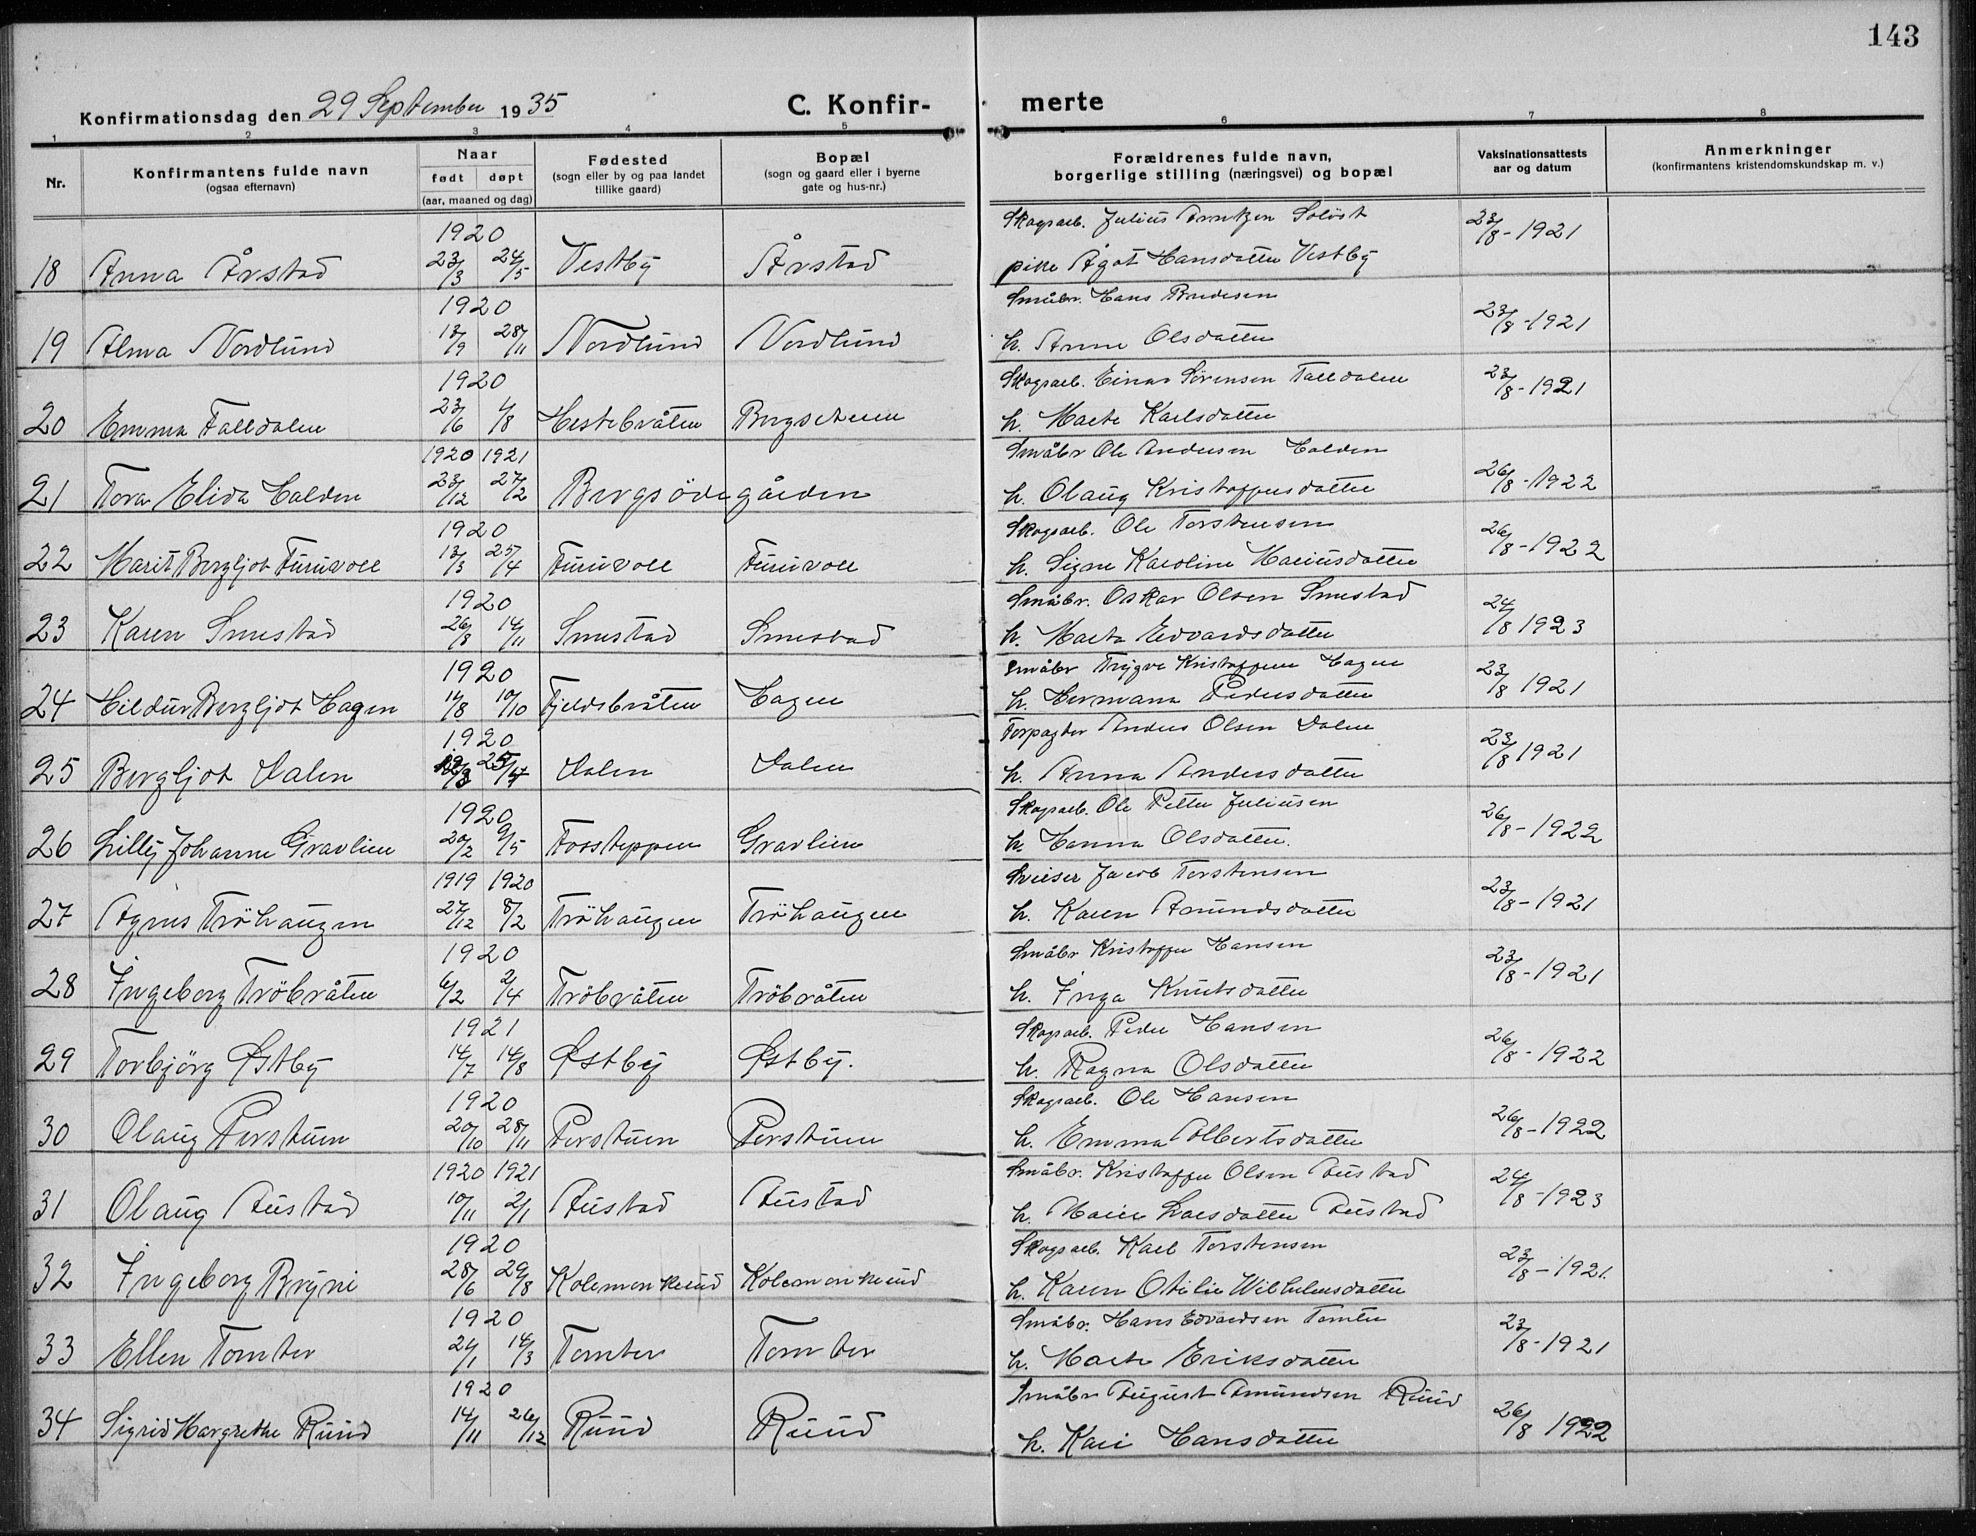 143
Konfirmationsdag den 29 September 1935
C. Konfir- merte
1 2 3 4 5 6 7 8
Nr.
Konfirmantens fulde navn
(ogsaa efternavn)
Naar
født døpt
(aar, maaned og dag)
Fødested
(sogn eller by og paa landet
tillike gaard)
Bopæl
(sogn og gaard eller i byerne
gate og hus-nr.)
Forældrenes fulde navn,
borgerlige stilling (næringsvei) og bopæl
Vaksinationsattests
aar og datum
Anmerkninger
(konfirmantens kristendomskundskap m. v.)
1920 Skogsarb. Julius Arntzen Soløst 23/8-1921
18 Anna Årstad 23/3 24/5 Vestby Årstad pike Ågot Hansdatter Vestby
1920 Småbr. Hans Bredesen 23/8-1921
19 Alma Nordlund 13/9 28/11 Nordlund Nordlund h. Anne Olsdatter
1920 Skogsarb. Einar Sørensen Falldalen 23/8-1921
20 Emma Falldalen 23/6 1/8 Hestebråten Bergseteren h. Marte Karlsdatter
1920 1921 Småbr Ole Andersen Halden 26/8-1922
21 Tora Elida Halden 23/12 27/2 Bergsödegården h. Olaug Kristoffersdatter
1920 Skogsarb. Ole Torstensen 26/8-1922
22 Marit Bergljot Furuvoll 13/3 25/4 Furuvoll Furuvoll h. Signe Karoline Mariusdatter
1920 Småbr. Oskar Olsen Smestad 24/8 1923
23 Karen Smestad 26/8 14/11 Smestad Smestad h. Marta Edvardsdatter
1920 Småbr Trygve Kristoffersen Hagen 23/8 1921
24 Hildur Bergljot Hagen 14/8 10/10 Fjeldsbråten Hagen h. Hermana Pedersdatter
1920 Forpagter Anders Olsen Dalen 23/8 1921
25 Bergljot Dalen 25/4 Dalen Dalen h. Anna Andersdatter
1920 Skogsarb. Ole Petter Juliusen 26/8-1922
26 Lilly Johanne Gravlien 20/2 9/5 Fossteppen Gravlien h. Hanna Olsdatter.
1919 1920 Sveiser Jacob Torstensen 23/8-1921
27 Agnes Tröhaugen 27/12 8/2 Tröhaugen Tröhaugen h. Karen Amundsdatter
1920 Småbr Kristoffer Hansen 23/8-1921
28 Ingeborg Tröbråten 6/2 2/4 Tröbråten Tröbråten h. Inga Knutsdatter
1921 Skogsarb. Peder Hansen 26/8-1922
29 Torbjörg Østby 14/7 14/8 Østby Østby. h. Ragna Olsdatter
1920 Skogsarb. Ole Hansen 26/8-1922
30 Olaug Perstuen 20/10 28/11 Perstuen Perstuen h. Emma Albertsdatter
1920 1921 Småbr. Kristoffer Olsen Austad 24/8-1923
31 Olaug Austad 10/11 2/1 Austad Austad h. Marie Larsdatter Austad
1920 Skogsarb. Karl Torstensen 23/8-1921.
32 Ingeborg Bryni 28/6 29/8 Kolemonkerud Kolemonkerud h. Karen Otilie Wilhelmsdatter
1920 Småbr. Hans Edvardsen Tomter 23/8-1921
33 Ellen Tomter 24/1 14/3 Tomter Tomter h. Marte Eriksdatter
1920 Småbr August Amundsen Ruud 26/8 1922
34 Sigrid Margrethe Ruud 14/11 26/12 Ruud Ruud h. Kari Hansdatter